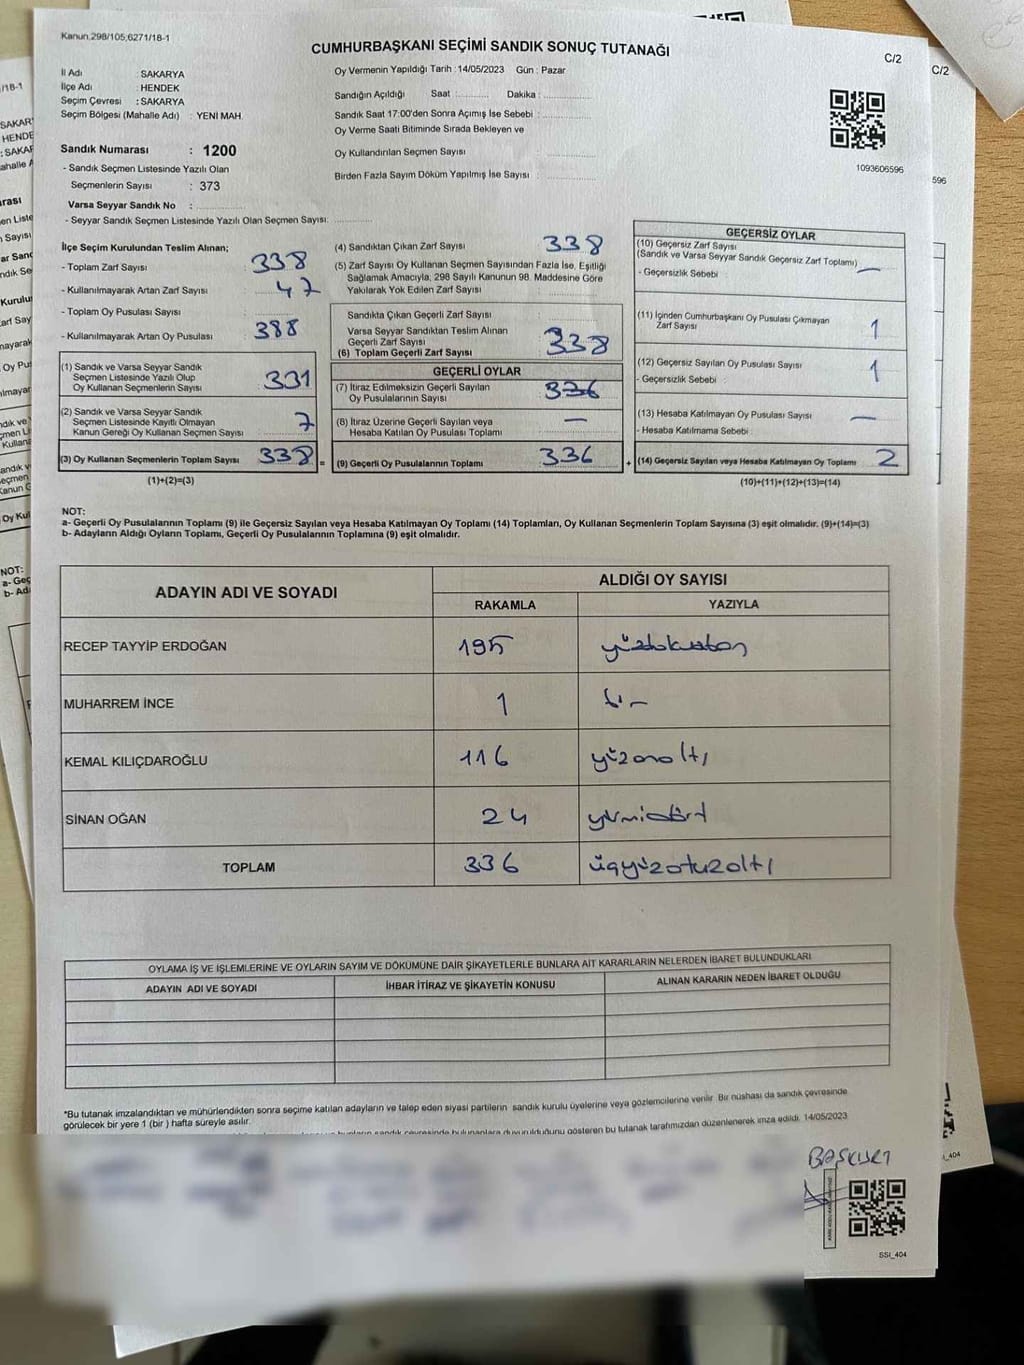 Kanun.298/105;6271/18-1
CUMHURBAŞKANI SEÇİMİ SANDIK SONUÇ TUTANAĞI
C/2
C/2
İl Adı : SAKARYA
İlçe Adı : HENDEK
Seçim Çevresi : SAKARYA
Seçim Bölgesi (Mahalle Adı) : YENİ MAH.
Sandık Numarası : 1200
- Sandık Seçmen Listesinde Yazılı Olan
Seçmenlerin Sayısı : 373
Varsa Seyyar Sandık No :
- Seyyar Sandık Seçmen Listesinde Yazılı Olan Seçmen Sayısı:
Oy Vermenin Yapıldığı Tarih : 14/05/2023 Gün : Pazar
Sandığın Açıldığı Saat : Dakika :
Sandık Saat 17:00'den Sonra Açımış İse Sebebi :
Oy Verme Saati Bitiminde Sırada Bekleyen ve
Oy Kullandırılan Seçmen Sayısı :
Birden Fazla Sayım Döküm Yapılmış İse Sayısı :
1093606596
596
İlçe Seçim Kurulundan Teslim Alınan;
- Toplam Zarf Sayısı : 338
- Kullanılmayarak Artan Zarf Sayısı : 47
- Toplam Oy Pusulası Sayısı :
- Kullanılmayarak Artan Oy Pusulası : 388
(1) Sandık ve Varsa Seyyar Sandık
Seçmen Listesinde Yazılı Olup
Oy Kullanan Seçmenlerin Sayısı 331
(2) Sandık ve Varsa Seyyar Sandık
Seçmen Listesinde Kayıtlı Olmayan
Kanun Gereği Oy Kullanan Seçmen Sayısı 7
(3) Oy Kullanan Seçmenlerin Toplam Sayısı 338 =
(1)+(2)=(3)
(4) Sandıktan Çıkan Zarf Sayısı 338
(5) Zarf Sayısı Oy Kullanan Seçmen Sayısından Fazla İse, Eşitliği
Sağlamak Amacıyla, 298 Sayılı Kanunun 98. Maddesine Göre
Yakılarak Yok Edilen Zarf Sayısı
Sandıkta Çıkan Geçerli Zarf Sayısı
Varsa Seyyar Sandıktan Teslim Alınan
Geçerli Zarf Sayısı
(6) Toplam Geçerli Zarf Sayısı 338
GEÇERLİ OYLAR
(7) İtiraz Edilmeksizin Geçerli Sayılan
Oy Pusulalarının Sayısı 336
(8) İtiraz Üzerine Geçerli Sayılan veya
Hesaba Katılan Oy Pusulası Toplamı —
(9) Geçerli Oy Pusulalarının Toplamı 336 +
GEÇERSİZ OYLAR
(10) Geçersiz Zarf Sayısı
(Sandık ve Varsa Seyyar Sandık Geçersiz Zarf Toplamı) —
- Geçersizlik Sebebi :
(11) İçinden Cumhurbaşkanı Oy Pusulası Çıkmayan
Zarf Sayısı 1
(12) Geçersiz Sayılan Oy Pusulası Sayısı 1
- Geçersizlik Sebebi :
(13) Hesaba Katılmayan Oy Pusulası Sayısı —
- Hesaba Katılmama Sebebi :
(14) Geçersiz Sayılan veya Hesaba Katılmayan Oy Toplamı 2
(10)+(11)+(12)+(13)=(14)
NOT:
a- Geçerli Oy Pusulalarının Toplamı (9) ile Geçersiz Sayılan veya Hesaba Katılmayan Oy Toplamı (14) Toplamları, Oy Kullanan Seçmenlerin Toplam Sayısına (3) eşit olmalıdır. (9)+(14)=(3)
b- Adayların Aldığı Oyların Toplamı, Geçerli Oy Pusulalarının Toplamına (9) eşit olmalıdır.
ADAYIN ADI VE SOYADI
ALDIĞI OY SAYISI
RAKAMLA YAZIYLA
RECEP TAYYİP ERDOĞAN 195
MUHARREM İNCE 1 bir
KEMAL KILIÇDAROĞLU 116 yüzonaltı
SİNAN OĞAN 24 yirmidört
TOPLAM 336 üçyüzotuzaltı
OYLAMA İŞ VE İŞLEMLERİNE VE OYLARIN SAYIM VE DÖKÜMÜNE DAİR ŞİKAYETLERLE BUNLARA AİT KARARLARIN NELERDEN İBARET BULUNDUKLARI
ADAYIN ADI VE SOYADI İHBAR İTİRAZ VE ŞİKAYETİN KONUSU ALINAN KARARIN NEDEN İBARET OLDUĞU
*Bu tutanak imzalandıktan ve mühürlendikten sonra seçime katılan adayların ve talep eden siyasi partilerin sandık kurulu üyelerine veya gözlemcilerine verilir. Bir nüshası da sandık çevresinde
görülecek bir yere 1 (bir ) hafta süreyle asılır.
bulunanlara duyurulduğunu gösteren bu tutanak tarafımızdan düzenlenerek imza edildi. 14/05/2023
SSİ_404